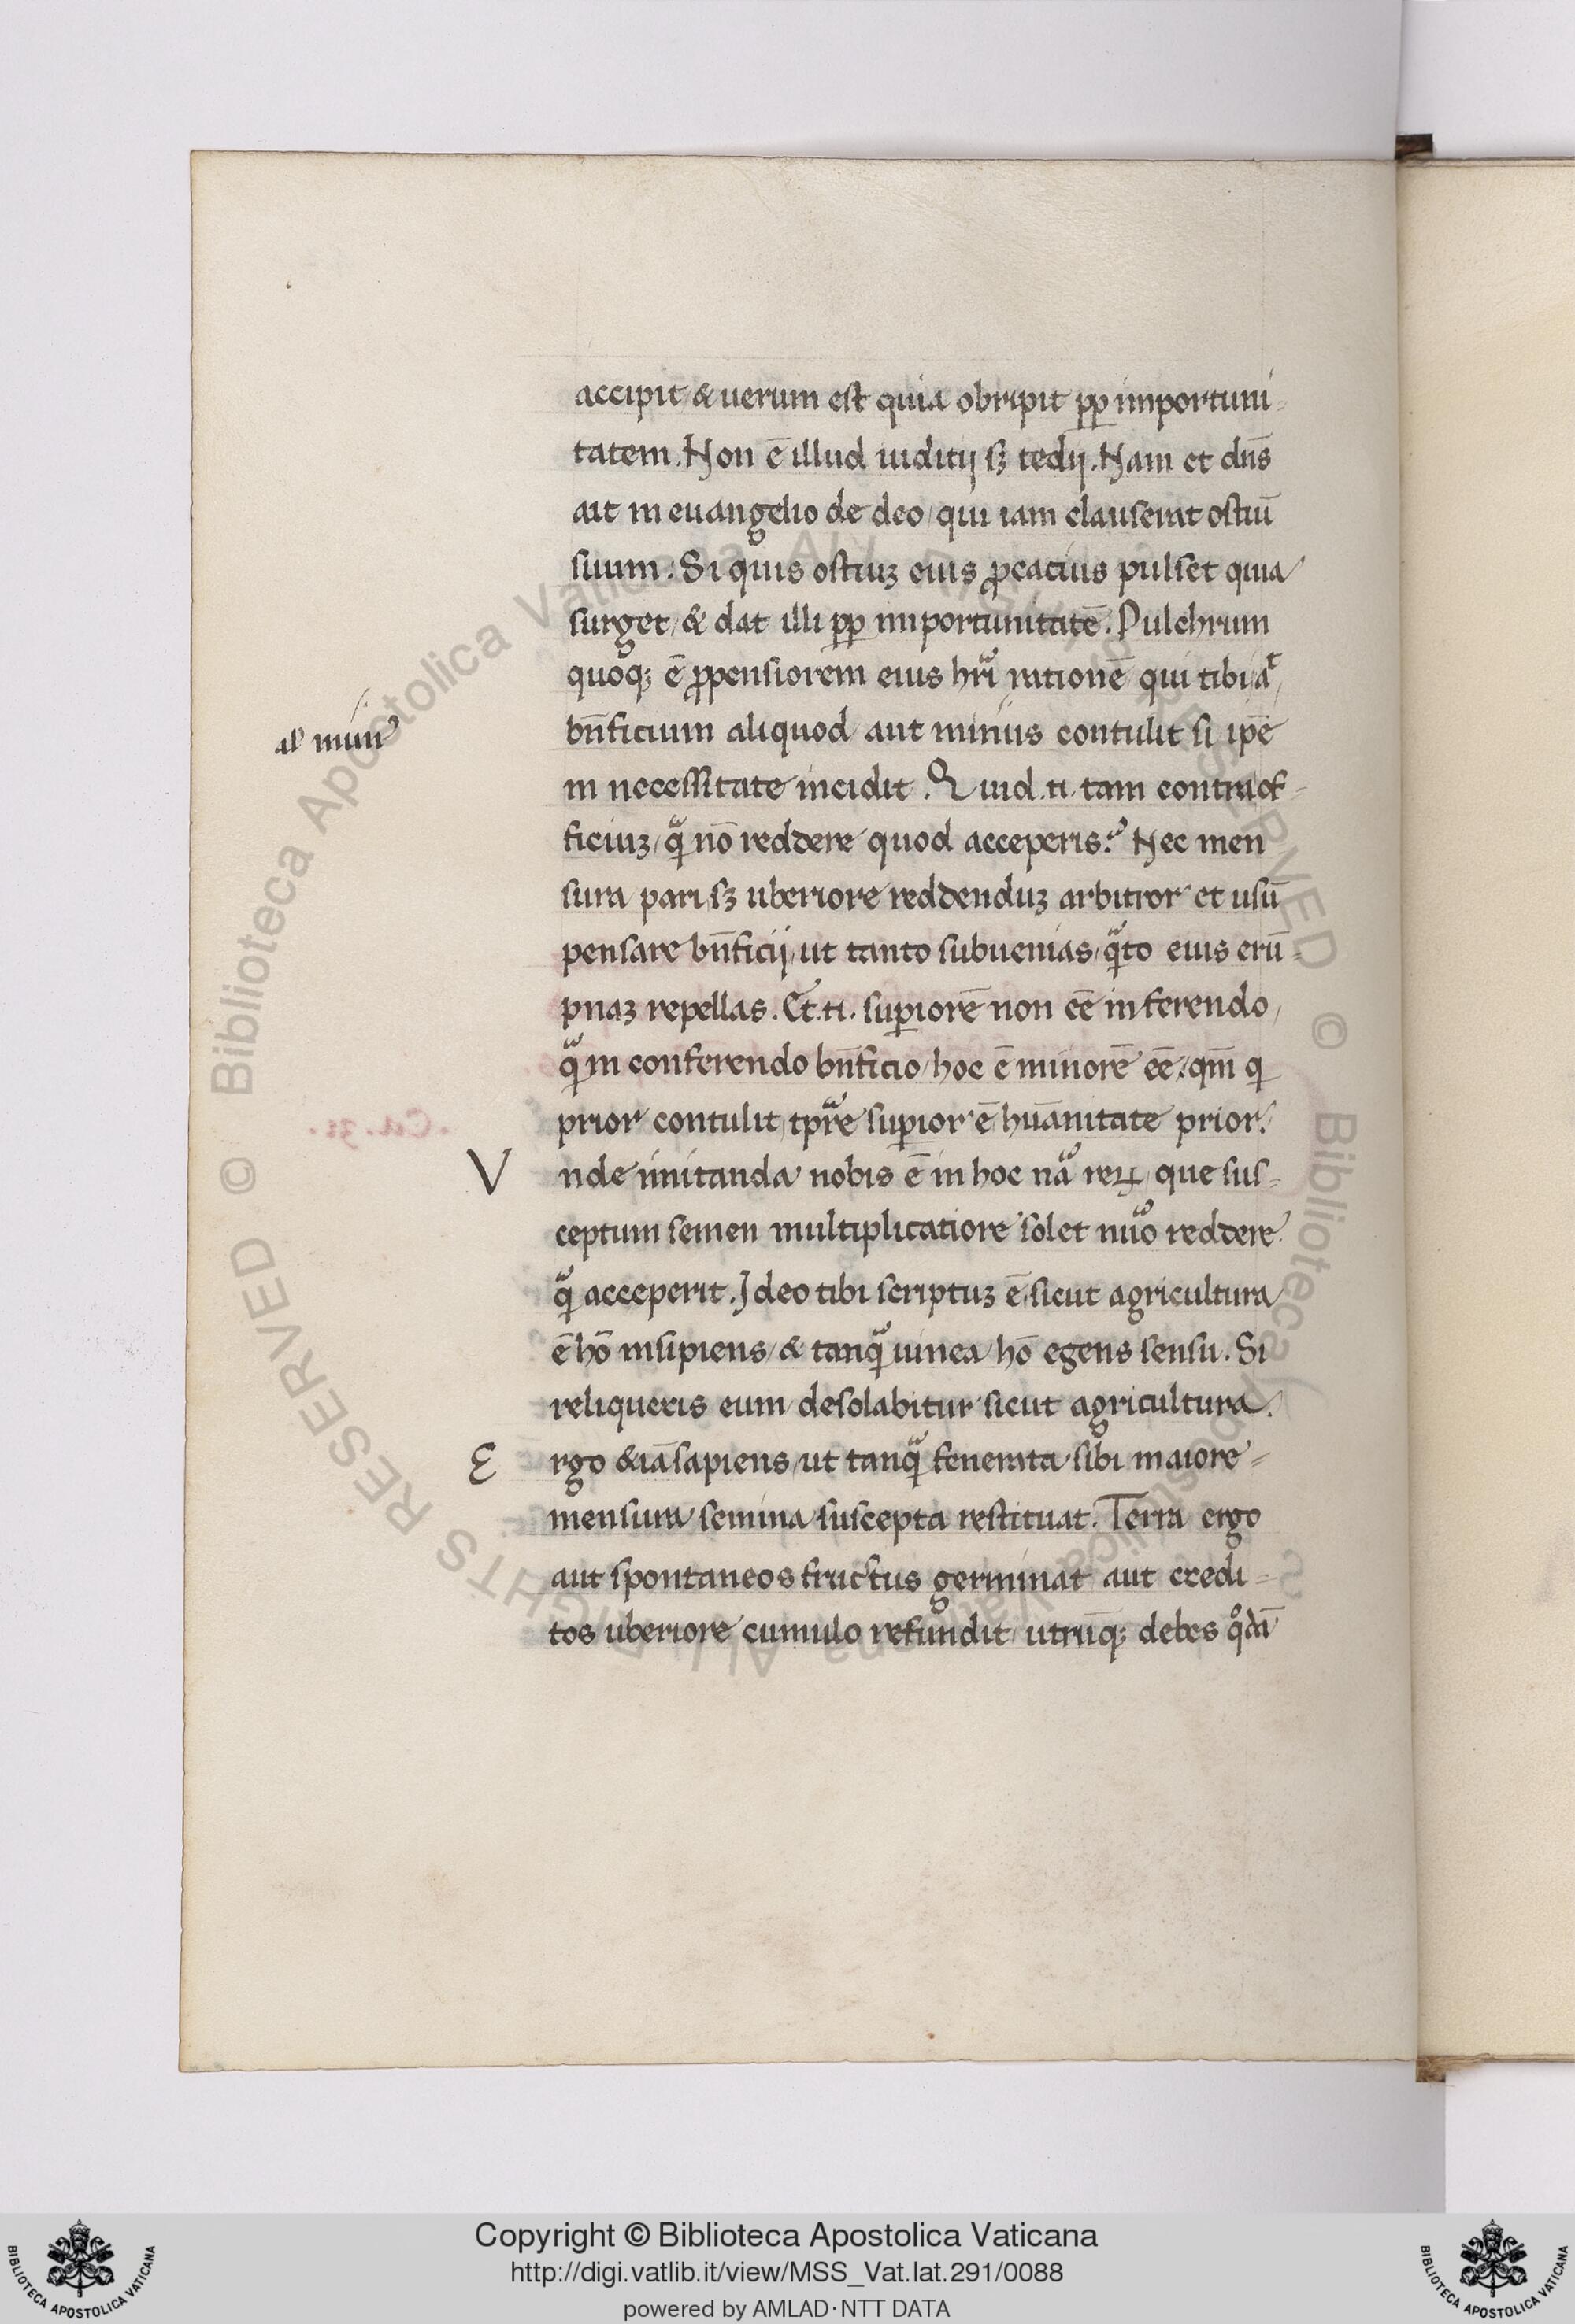 accipit & uerum est quia obripit pp importuni-
tatem. Non ē illud iuditij sꝫ tedij. Nam et dn̄s
ait in euangelio de deo qui iam clauserat ostiū
suum: Si quis ostiuꝫ eius ꝓcacius pulset quia
surget, & dat illi pp importunitatē. Pulchrum
quoqꝫ ē ꝓpensiorem eius hr̄i rationē qui tibi aͭ
al' mun'
bn̄ficium aliquod aut minus contulit si ip̄e
in necessitate incidit. Quid .n. tam contra of-
ficiuꝫ, qͣ nō reddere quod acceperis? Nec men
sura pari sꝫ uberiore reddenduꝫ arbitror et usū
pensare bn̄ficij, ut tanto subuenias, qͣto eius erū-
pnaꝫ repellas. Et .n. suꝑiorē non eē in ferendo,
qͣ in conferendo bn̄ficio, hoc ē minorē eē: qm̄ q
prior contulit tp̄re suꝑior ē, hūanitate prior.
Vnde imitanda nobis ē in hoc nͣa reꝝ, que sus-
ceptum semen multiplicatiore solet nūo reddere
qͣ acceperit. Ideo tibi scriptuꝫ ē, sicut agricultura
ē hō insipiens, & tanqͣ uinea hō egens sensu. Si
reliqueris eum desolabitur sicut agricultura.
Ergo &iā sapiens, ut tanqͣ fenerata sibi maiore-
mensura semina suscepta restituat. Terra ergo
aut spontaneos fructus germinat aut credi-
tos uberiore cumulo refundit utrūqꝫ debes qͦdā
Copyright © Biblioteca Apostolica Vaticana
http://digi.vatlib.it/view/MSS_Vat.lat.291/0088
powered by AMLAD·NTT DATA